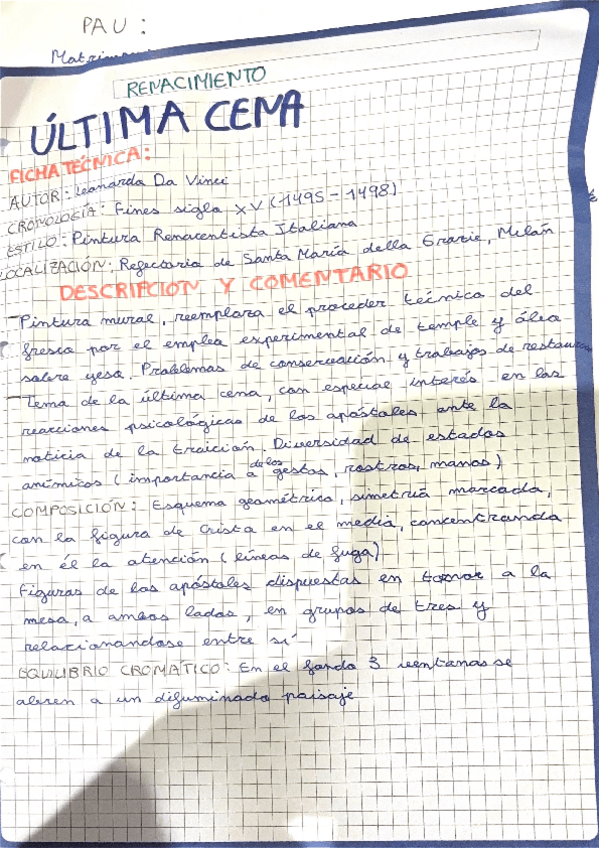 PAU:
RENACIMIENTO
ÚLTIMA CENA
FICHA TÉCNICA:
AUTOR: Leonardo Da Vinci
CRONOLOGÍA: Fines siglo XV (1495-1498)
ESTILO: Pintura Renacentista Italiana
LOCALIZACIÓN: Refectorio de Santa María della Grazie, Milán
DESCRIPCION Y COMENTARIO
- Pintura mural, reemplaza el proceder técnico del
fresco por el empleo experimental de temple y óleo
sobre yeso. Problemas de conservación y trabajos de
- Tema de la última cena, con especial interés en las
reacciones psicológicas de los apóstoles ante la
noticia de la traición. Diversidad de estados
anímicos (importancia a de los gestos, rostros, manos)
COMPOSICIÓN: Esquema geométrico, simetría marcada,
con la figura de Cristo en el medio, concentrando
en él la atención (líneas de fuga)
Figuras de los apóstoles dispuestas en tornor a la
mesa, a ambos lados, en grupos de tres y
relacionandose entre sí
EQUILIBRIO CROMÁTICO: En el fondo 3 ventanas se
abren a un difuminado paisaje